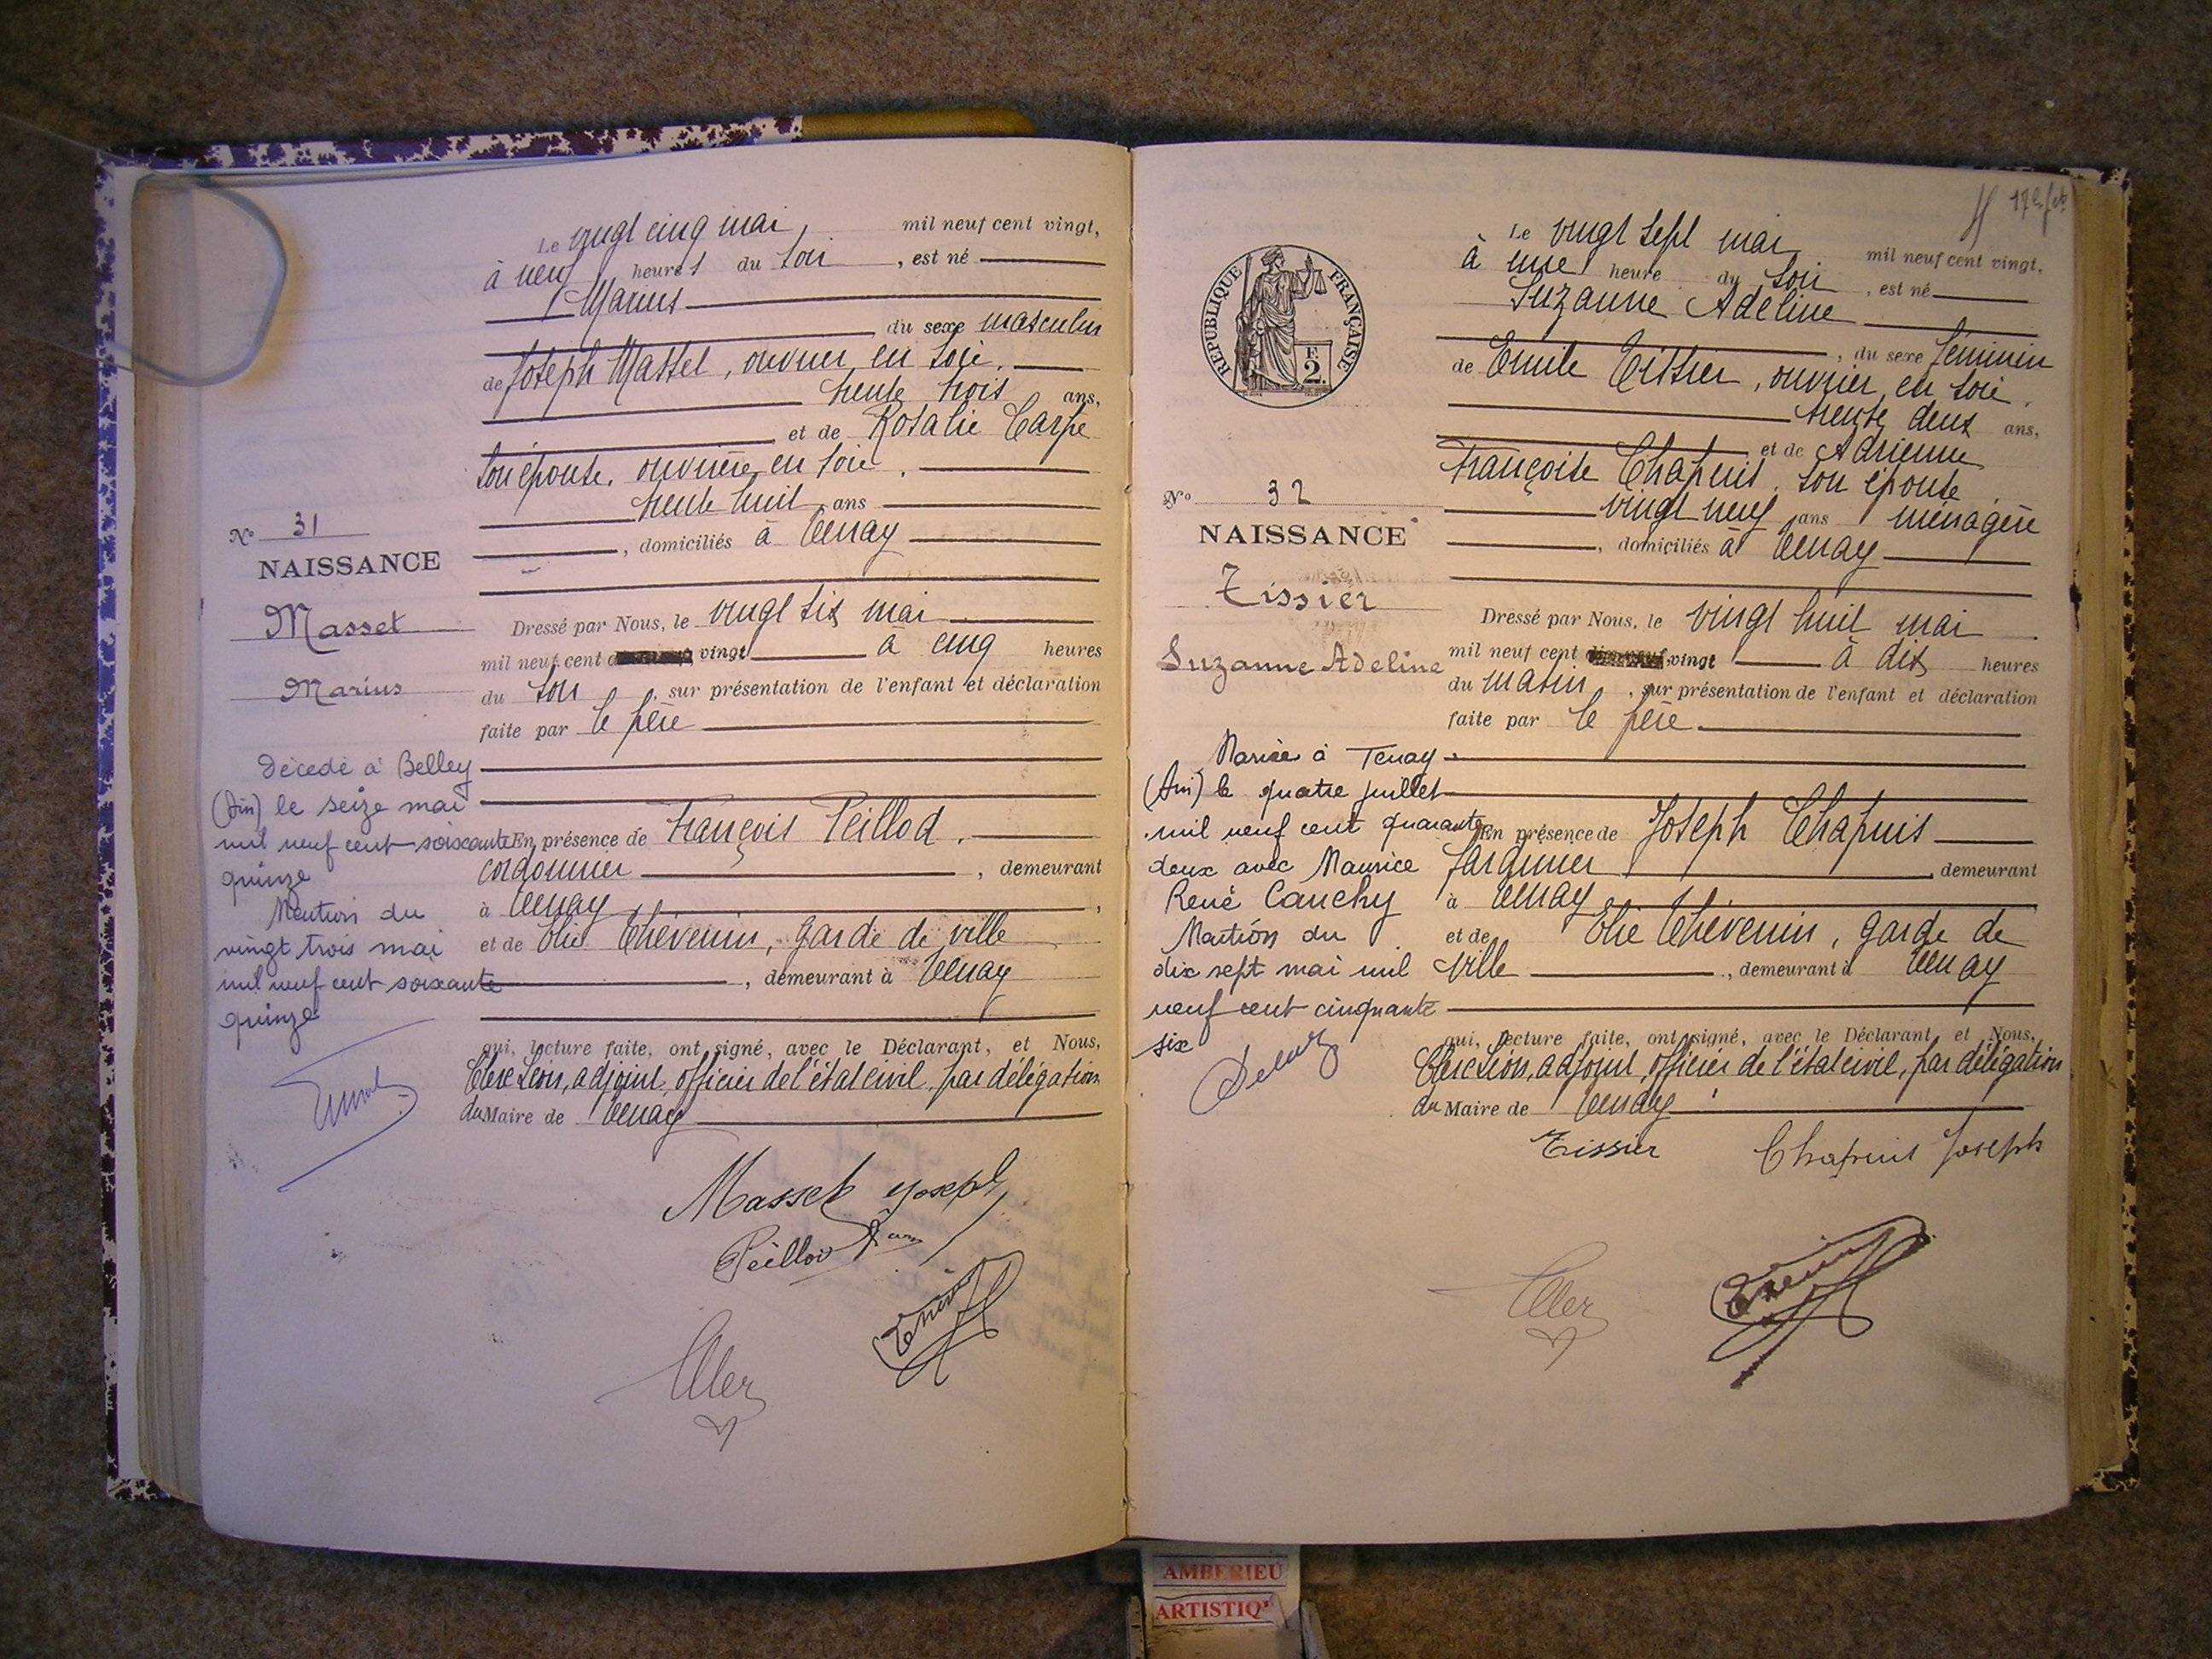 Le vingt cinq mai, mil neuf cent vingt,
à neuf heures du soir, est né
Marius
du sexe masculin
de Joseph Masset, ouvrier en soie,
trente trois ans,
et de Rosalie Carpe
son épouse, ouvrière en soie,
trente huit ans
, domiciliés à Tenay
N° 31
NAISSANCE
Masset
Marius
Dressé par Nous, le vingt six mai
mil neuf cent vingt à cinq heures
du soir, sur présentation de l'enfant et déclaration
faite par le père
Décédé à Belley
(Ain) le seize mai
mil neuf cent soixante
quinze
Mention du
vingt trois mai
mil neuf cent soixante
quinze
En présence de François Peillod,
cordonnier, demeurant
à Tenay,
et de Elie Thévenin, garde de ville
, demeurant à Tenay
qui, lecture faite, ont signé, avec le Déclarant, et Nous,
Clerc Léon, adjoint, officier de l'état civil, par délégation
du Maire de Tenay
Masset Joseph
Peillod
RÉPUBLIQUE FRANÇAISE
E
2.
Le vingt sept mai mil neuf cent vingt,
à une heure du soir, est né
Suzanne Adeline
, du sexe féminin
de Emile Tissier, ouvrier en soie,
trente deux ans,
et de Adrienne
Françoise Chapuis, son épouse,
vingt neuf ans ménagère
, domiciliés à Tenay
N° 32
NAISSANCE
Tissier
Suzanne Adeline
Dressé par Nous, le vingt huit mai
mil neuf cent vingt à dix heures
du matin, sur présentation de l'enfant et déclaration
faite par le père
Mariée à Tenay
(Ain) le quatre juillet
mil neuf cent quarante
deux avec Maurice
René Cauchy
Mention du
dix sept mai mil
neuf cent cinquante
six
En présence de Joseph Chapuis
, demeurant
à Tenay
et de Elie Thévenin, garde de
ville, demeurant à Tenay
qui, lecture faite, ont signé, avec le Déclarant, et Nous,
Clerc Léon, adjoint, officier de l'état civil, par délégation
du Maire de Tenay
Tissier Chapuis Joseph
AMBERIEU
ARTISTIQ